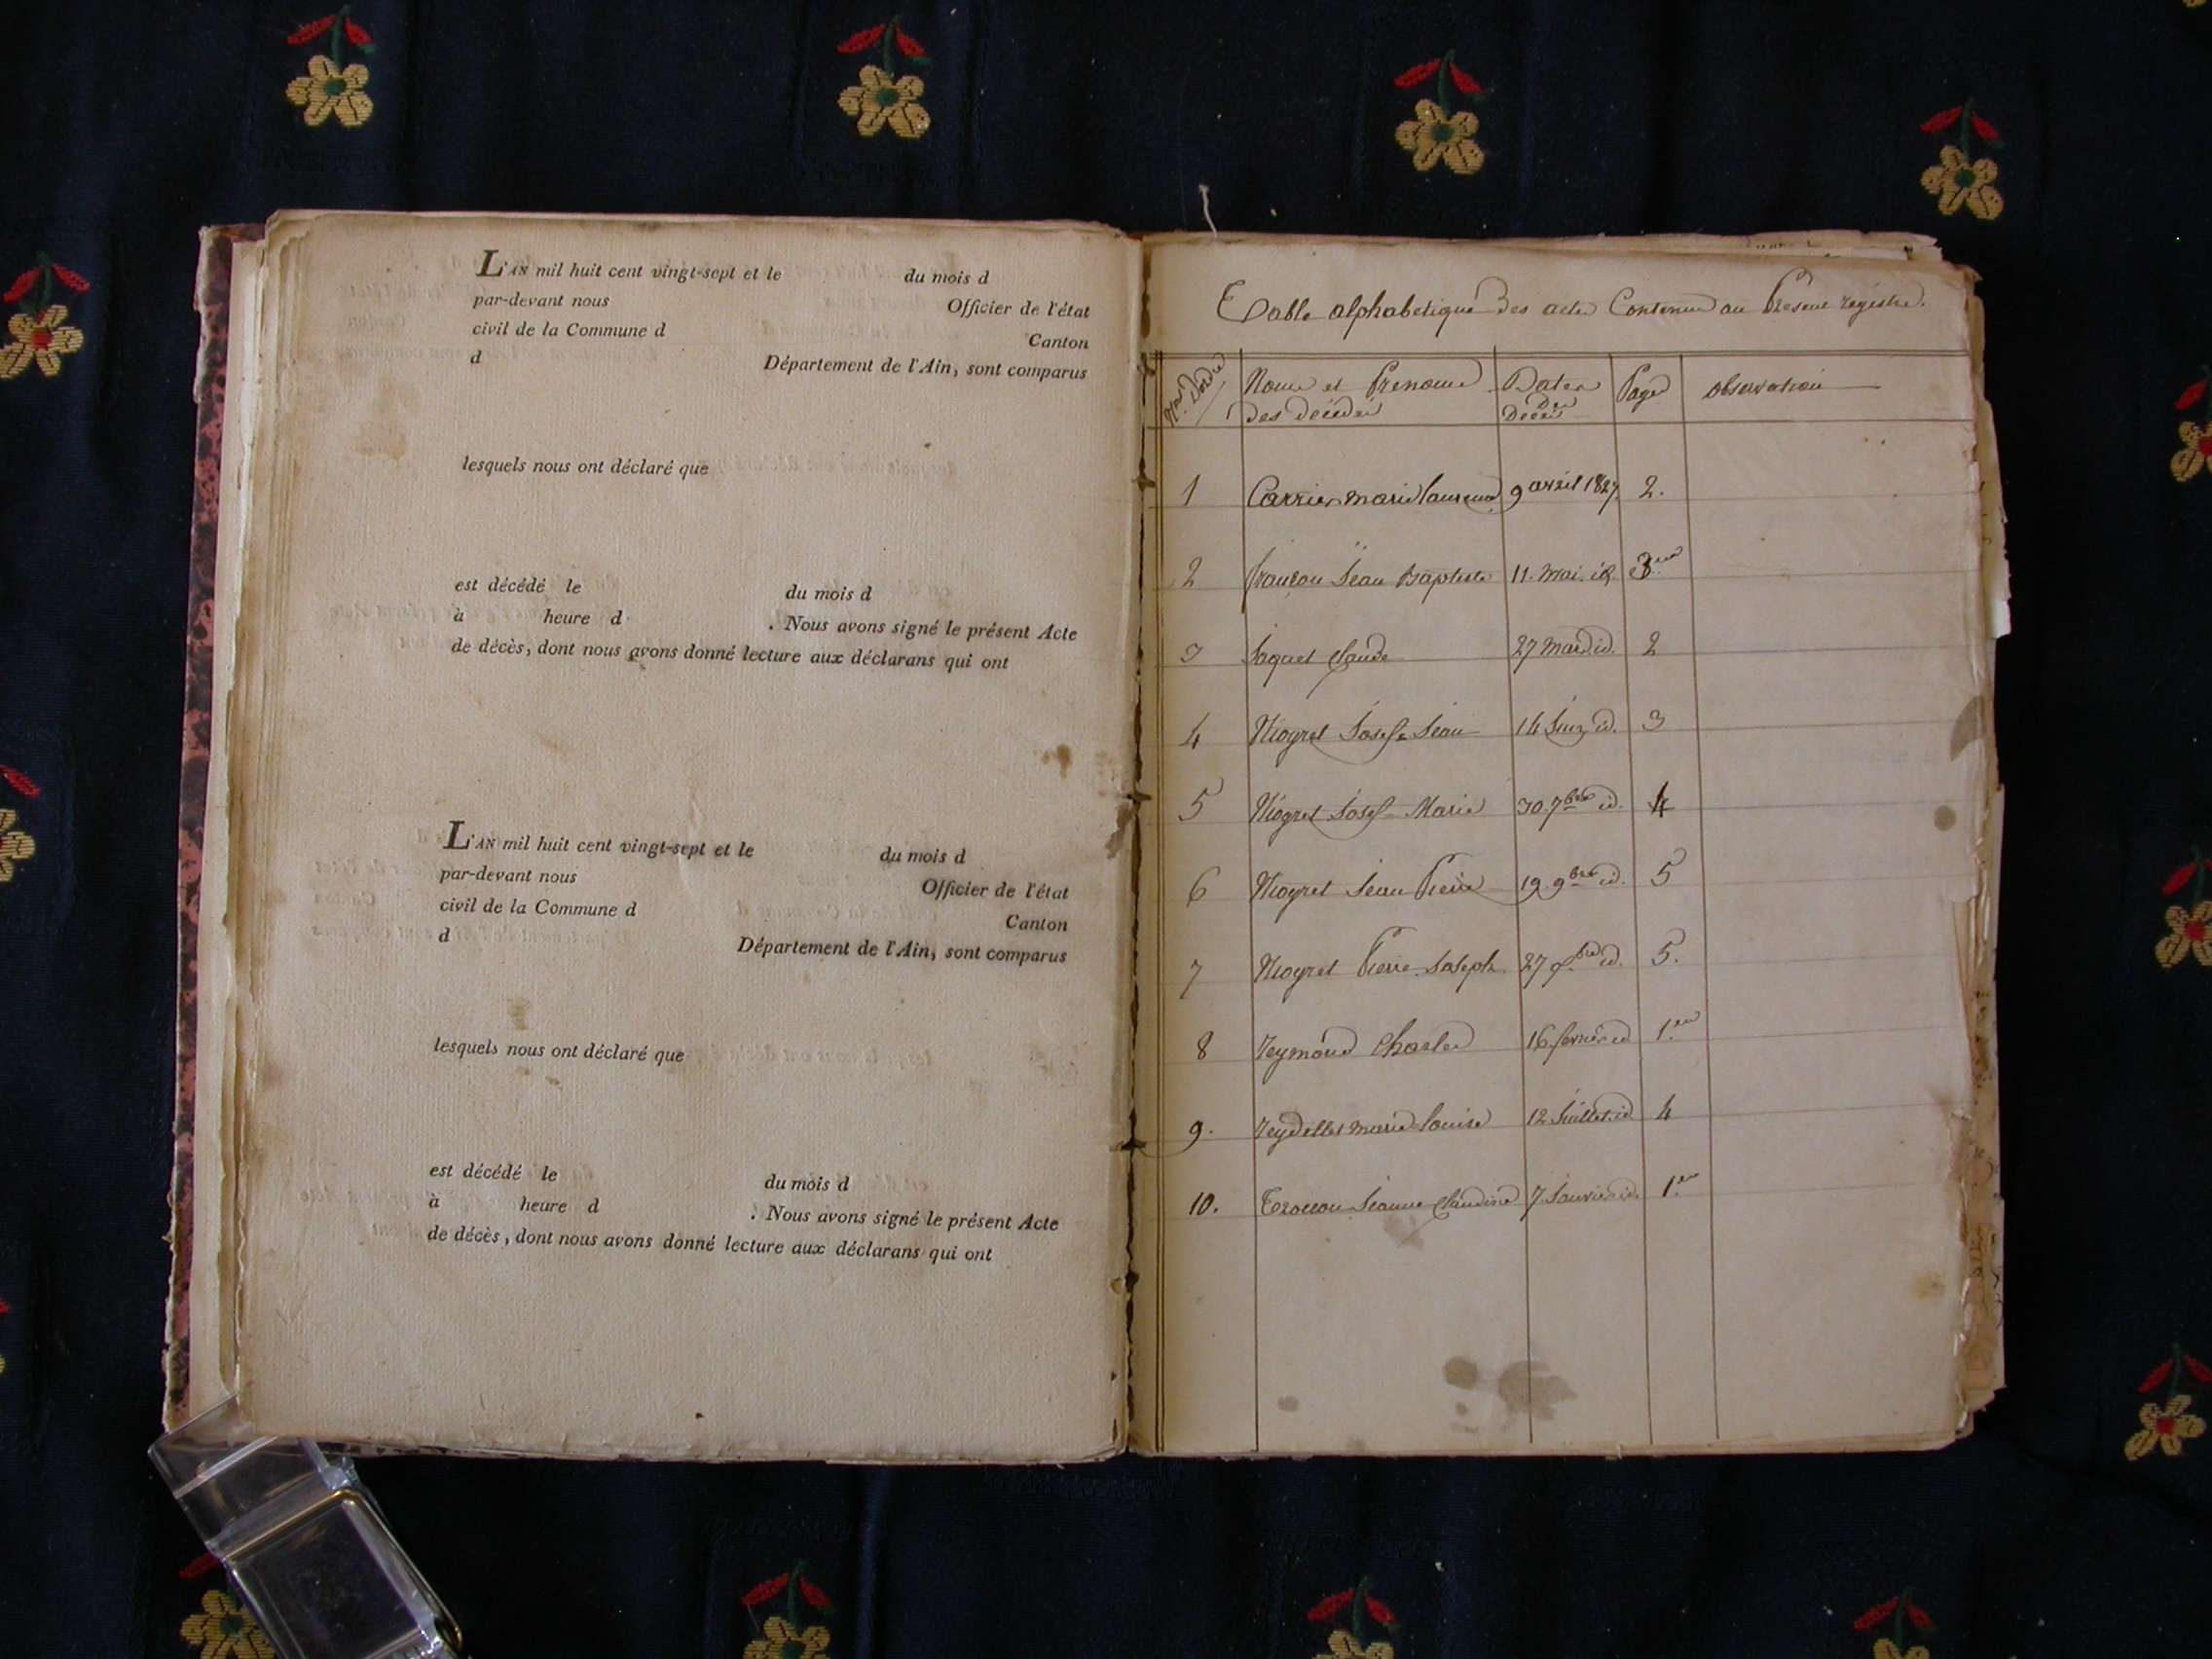 L'AN mil huit cent vingt-sept et le du mois d
par-devant nous Officier de l'état
civil de la Commune d Canton
d Département de l'Ain, sont comparus
lesquels nous ont déclaré que
est décédé le du mois d
à heure d . Nous avons signé le présent Acte
de décès, dont nous avons donné lecture aux déclarans qui ont
L'AN mil huit cent vingt-sept et le du mois d
par-devant nous Officier de l'état
civil de la Commune d Canton
d Département de l'Ain, sont comparus
lesquels nous ont déclaré que
est décédé le du mois d
à heure d . Nous avons signé le présent Acte
de décès, dont nous avons donné lecture aux déclarans qui ont
Table alphabetique des actes Contenu au Present registre.
Nos. D'ordre Noms et Prenoms des décédés Dates Des Décès Page observation
1 Carrier marie 9 avril 1827 2.
2 Jean Baptiste 11. Mai. id 3
3 Jaquet Claude 27 id. 2
4 Niogret Josef Jean 14 Juin id. 3
5 Niogret Josef Marie 30. 7bre id. 4
6 Niogret Jean Pierre 19. 9bre id. 5
7 Niogret Pierre Joseph 27 id. 5.
8 Reymond Charles 16 fevrier id 1.er
9. Reydellet marie Louise 12 Juillet id 4
10. Jeanne Claudine 7 Janvier id. 1.er